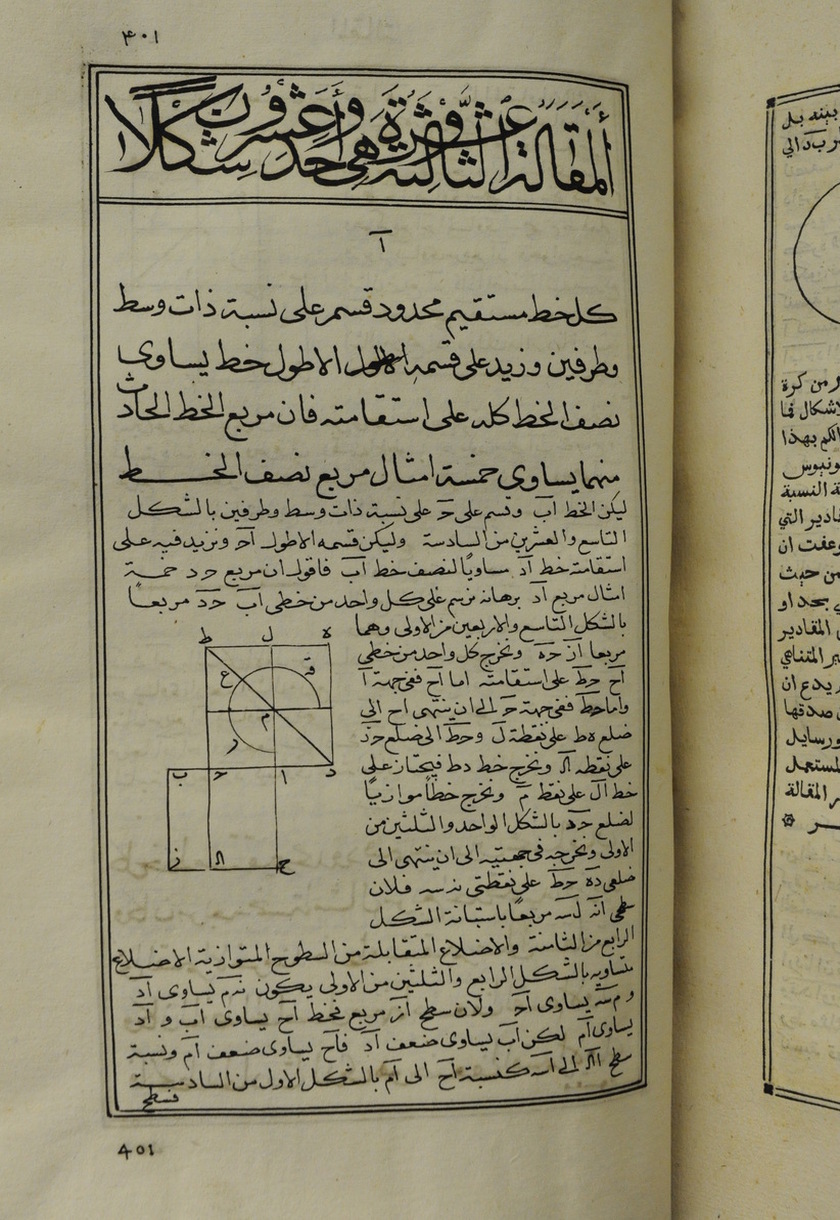 ٤٠١
المقالة الثالثة عشر وهي أحد وعشرون شكلا
آ
كل خط مستقيم محدود قسم على نسبة ذات وسط
وطرفين وزيد على قسمه الاطول خط يساوي
نصف الخط كله على استقامته فان مربع الخط الحادث
منهما يساوي خمسة امثال مربع نصف الخط
ليكن الخط آب وقسم على حَ على نسبة ذات وسط وطرفين بالشكل
التاسع والعشرين من السادسة وليكن قسمه الاطول آحَ ونزيد فيه على
استقامته خط آد مساويًا لنصف خط آب فاقول ان مربع حد خمسة
امثال مربع آد برهانه نرسم على كل واحد من خطي آب حد مربعًا
بالشكل التاسع والاربعين من الاولى وهما
مربعا آز حه ونخرج كل واحد من خطي
آح حط على استقامته اما آح ففي جهة آ
واما حط ففي جهة ح الى ان ينتهي آح الى
ضلع هط على نقطة ل وحط الى ضلع حز
على نقطه ونخرج خط دط فيجتاز على
خط آل على نقط م ونخرج خطاً موازيًا
لضلع حد بالشكل الواحد والثلثين من
الاولى ونخرجه في جهتيه الى ان ينتهي الى
ضلعي ده حط على نقطتي نه سه فلان
سطحي مربعا باستبانة الشكل
الرابع من الثامنة والاضلاع المتقابلة من السطوح المتوازية الاضلاع
متساويه بالشكل الرابع والثلثين من الاولى يكون يساوي آد
و م سه يساوي آحَ ولان سطح آز مربع فخط آح يساوي آب و آد
يساوي آم لكن آب يساوي ضعف آد فآح يساوي ضعف آم ونسبة
سطح الى كنسبة آح الى آم بالشكل الاول من السادسة
فسطح
ط
ل
ه
ق
ع
م
ر
ب
ح
ا
د
ز
ح
401
بينه بل
من كرة
الاشكال
بهذا
النسبة
المقادير التي
من حيث
المقادير
يدع ان
صدقها
ورسايل
المستعمل
المقالة